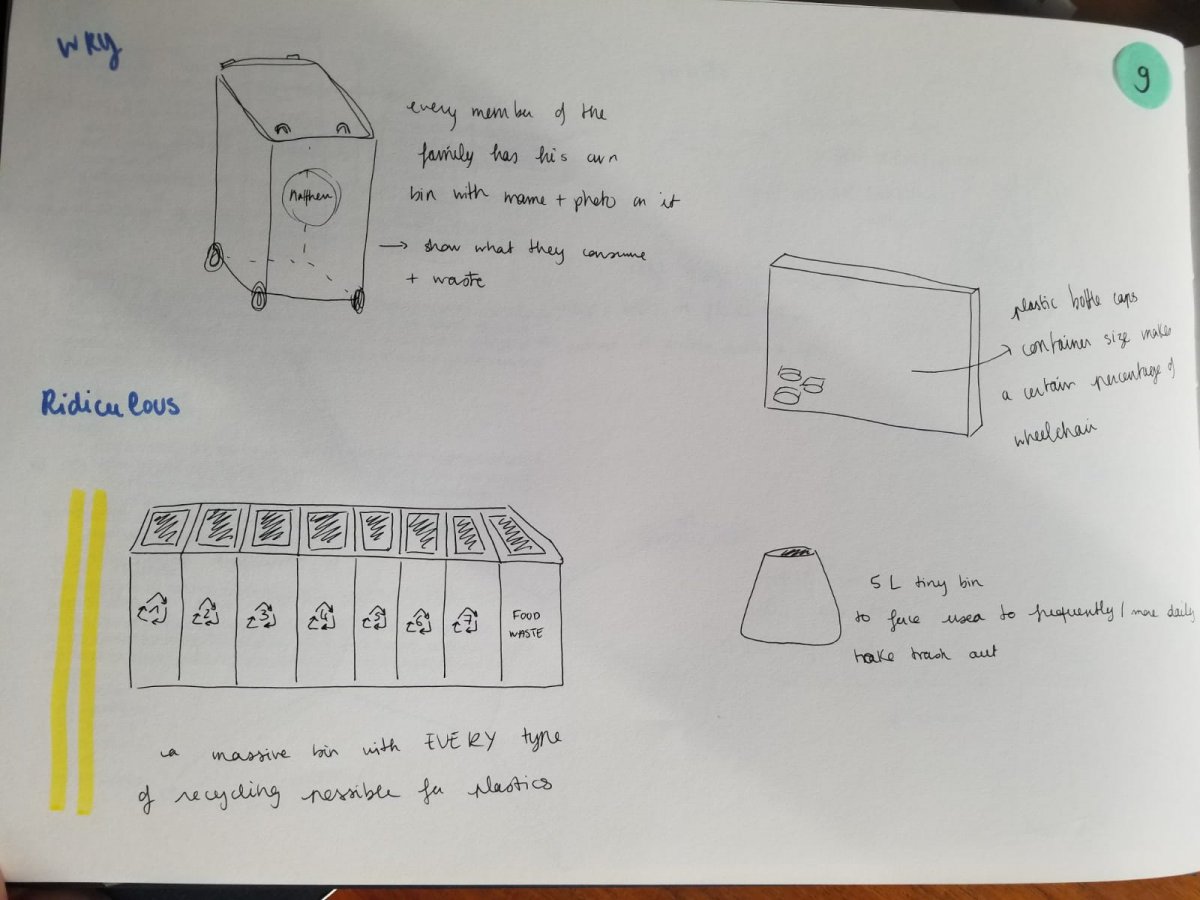 WRY
9
every member of the
family has his own
bin with name + photo on it
→ show what they consume
+ waste
Matthew
plastic bottle caps
→ container size makes
a certain percentage of
wheelchair
Ridiculous
1
2
3
4
5
6
7
FOOD
WASTE
a massive bin with EVERY type
of recycling possible for plastics
5 L tiny bin
to force user to frequently / more daily
take trash out